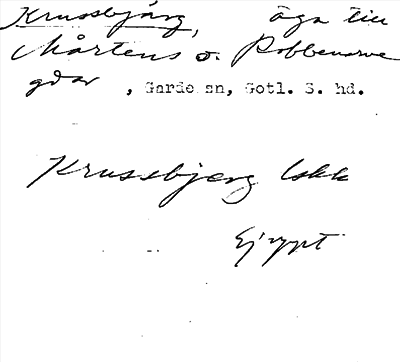 Krussbjärg, äga till
Mårtens o. Robbenarve
gdar , Garde sn, Gotl. S. hd.
Krussbjerg Lskk
Ej uppt